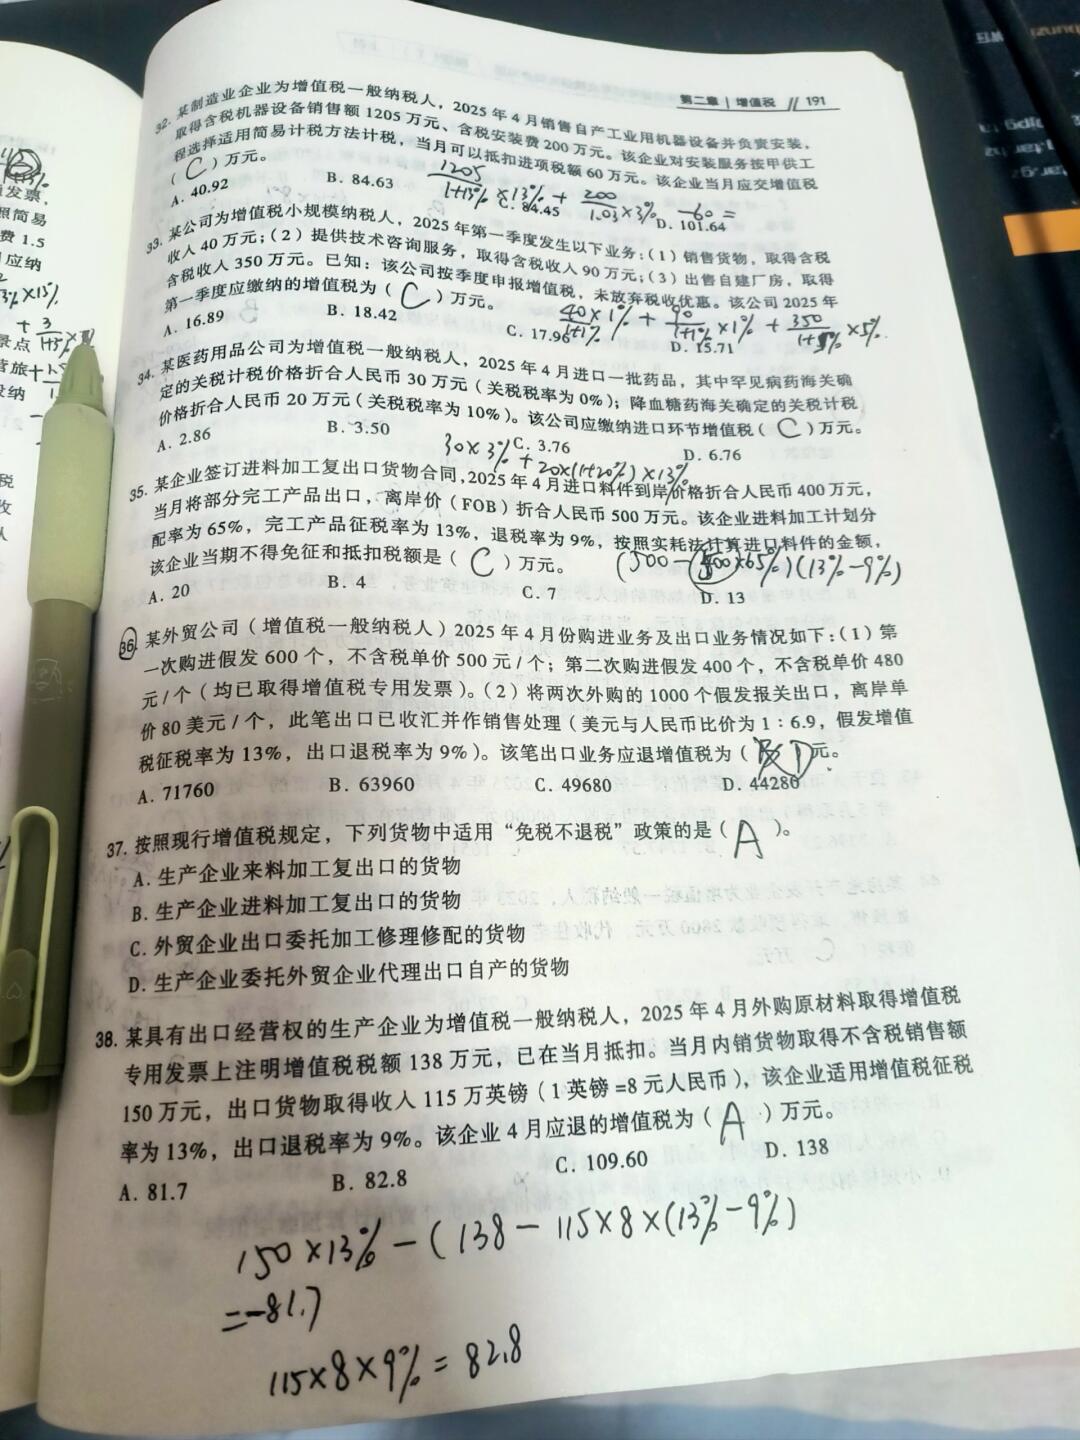 第二章 | 增值税 // 191
32. 某制造业企业为增值税一般纳税人，2025 年 4 月销售自产工业用机器设备并负责安装，
取得含税机器设备销售额 1205 万元、含税安装费 200 万元。该企业对安装服务按甲供工
程选择适用简易计税方法计税，当月可以抵扣进项税额 60 万元。该企业当月应交增值税
（ C ）万元。
A. 40.92 B. 84.63 C. 84.45 D. 101.64
1205/1+13% ×13% + 200/1.03 ×3% －60 =
33. 某公司为增值税小规模纳税人，2025 年第一季度发生以下业务：（1）销售货物，取得含税
收入 40 万元；（2）提供技术咨询服务，取得含税收入 90 万元；（3）出售自建厂房，取得
含税收入 350 万元。已知：该公司按季度申报增值税，未放弃税收优惠。该公司 2025 年
第一季度应缴纳的增值税为（ C ）万元。
A. 16.89 B. 18.42 C. 17.96 D. 15.71
40×1%/1+1% + 90/1+1% ×1% + 350/1+5% ×5%
34. 某医药用品公司为增值税一般纳税人，2025 年 4 月进口一批药品，其中罕见病药海关确
定的关税计税价格折合人民币 30 万元（关税税率为 0%）；降血糖药海关确定的关税计税
价格折合人民币 20 万元（关税税率为 10%）。该公司应缴纳进口环节增值税（ C ）万元。
A. 2.86 B. 3.50 C. 3.76 D. 6.76
30×3% + 20×(1+20%) ×13%
35. 某企业签订进料加工复出口货物合同，2025 年 4 月进口料件到岸价格折合人民币 400 万元，
当月将部分完工产品出口，离岸价（FOB）折合人民币 500 万元。该企业进料加工计划分
配率为 65%，完工产品征税率为 13%，退税率为 9%，按照实耗法计算进口料件的金额，
该企业当期不得免征和抵扣税额是（ C ）万元。
(500－(500×65%)(13%－9%)
A. 20 B. 4 C. 7 D. 13
36. 某外贸公司（增值税一般纳税人）2025 年 4 月份购进业务及出口业务情况如下：（1）第
一次购进假发 600 个，不含税单价 500 元/个；第二次购进假发 400 个，不含税单价 480
元/个（均已取得增值税专用发票）。（2）将两次外购的 1000 个假发报关出口，离岸单
价 80 美元/个，此笔出口已收汇并作销售处理（美元与人民币比价为 1：6.9，假发增值
税征税率为 13%，出口退税率为 9%）。该笔出口业务应退增值税为（ D 元。
A. 71760 B. 63960 C. 49680 D. 44280
37. 按照现行增值税规定，下列货物中适用“免税不退税”政策的是（ A ）。
A. 生产企业来料加工复出口的货物
B. 生产企业进料加工复出口的货物
C. 外贸企业出口委托加工修理修配的货物
D. 生产企业委托外贸企业代理出口自产的货物
38. 某具有出口经营权的生产企业为增值税一般纳税人，2025 年 4 月外购原材料取得增值税
专用发票上注明增值税税额 138 万元，已在当月抵扣。当月内销货物取得不含税销售额
150 万元，出口货物取得收入 115 万英镑（1 英镑=8 元人民币），该企业适用增值税征税
率为 13%，出口退税率为 9%。该企业 4 月应退的增值税为（ A ）万元。
A. 81.7 B. 82.8 C. 109.60 D. 138
150×13%－(138－115×8×(13%－9%)
=－81.7
115×8×9% = 82.8